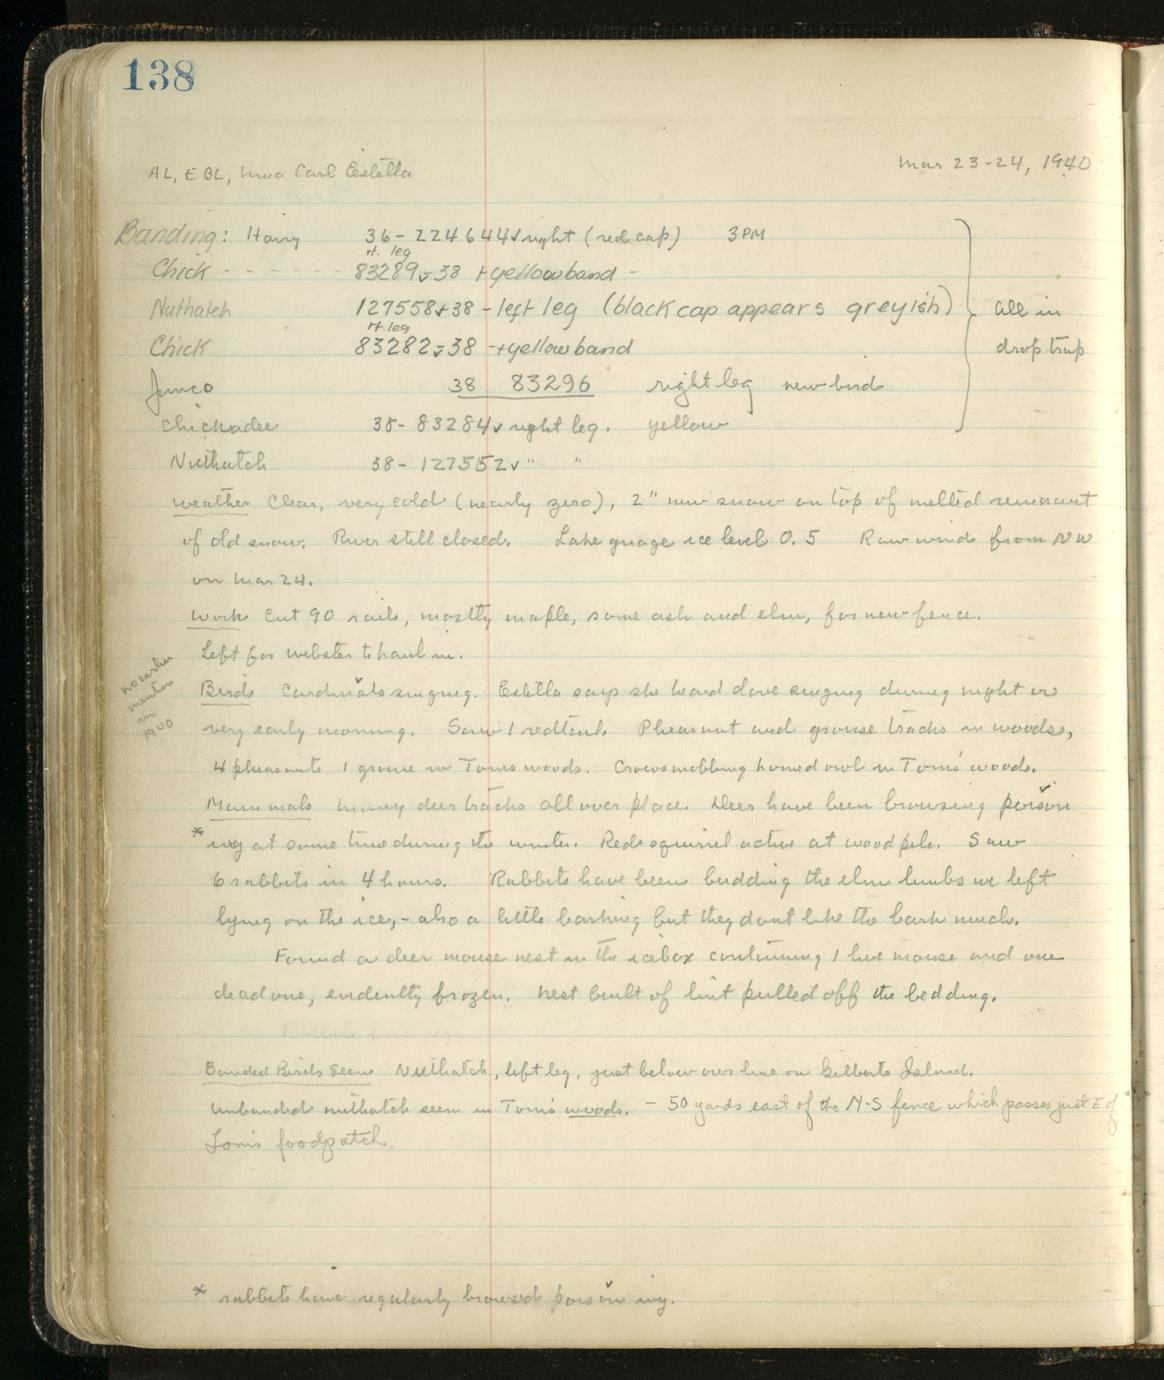 138
AL, EBL, Nina Carl Estella Mar 23-24, 1940
Banding: Hairy 36- 224644✓ right (red cap) 3PM
rt. leg
Chick - - - - - - 83289✓-38 + yellow band -
Nuthatch 127558✓+38 - left leg (black cap appears greyish) all in
rt. leg
Chick 83282✓-38 -+yellow band drop trap
Junco 38 83296 right leg new bird
Chickadee 38- 83284✓ right leg. yellow
Nuthatch 38- 127552✓ " "
Weather Clear, very cold (nearly zero), 2" new snow on top of melted remnant
of old snow. River still closed. Lake guage ice level 0.5 Raw wind from NW
on Mar 24.
Work Cut 90 rails, mostly maple, some ash and elm, for new fence.
Left for Webster to haul in.
no earlier
mention
in
1940
Birds Cardinals singing. Estella says she heard dove singing during night or
very early morning. Saw 1 redtail. Pheasant and grouse tracks in woods,
4 pheasants 1 grouse in Tom's woods. Crows mobbing horned owl in Tom's woods.
Mammals many deer tracks all over place. Deer have been browsing poison
* ivy at some time during the winter. Red squirrel active at woodpile. Saw
6 rabbits in 4 hours. Rabbits have been budding the elm limbs we left
lying on the ice, - also a little barking but they dont like the bark much.
Found a deer mouse nest in the icebox containing 1 live mouse and one
dead one, evidently frozen. Nest built of lint pulled off the bedding.
Banded Birds Seen Nuthatch, left leg, just below our line on Gilberts Island.
Unbanded nuthatch seen in Tom's woods. - 50 yards east of the N-S fence which passes just E of
Tom's foodpatch.
* rabbits have regularly browsed poison ivy.